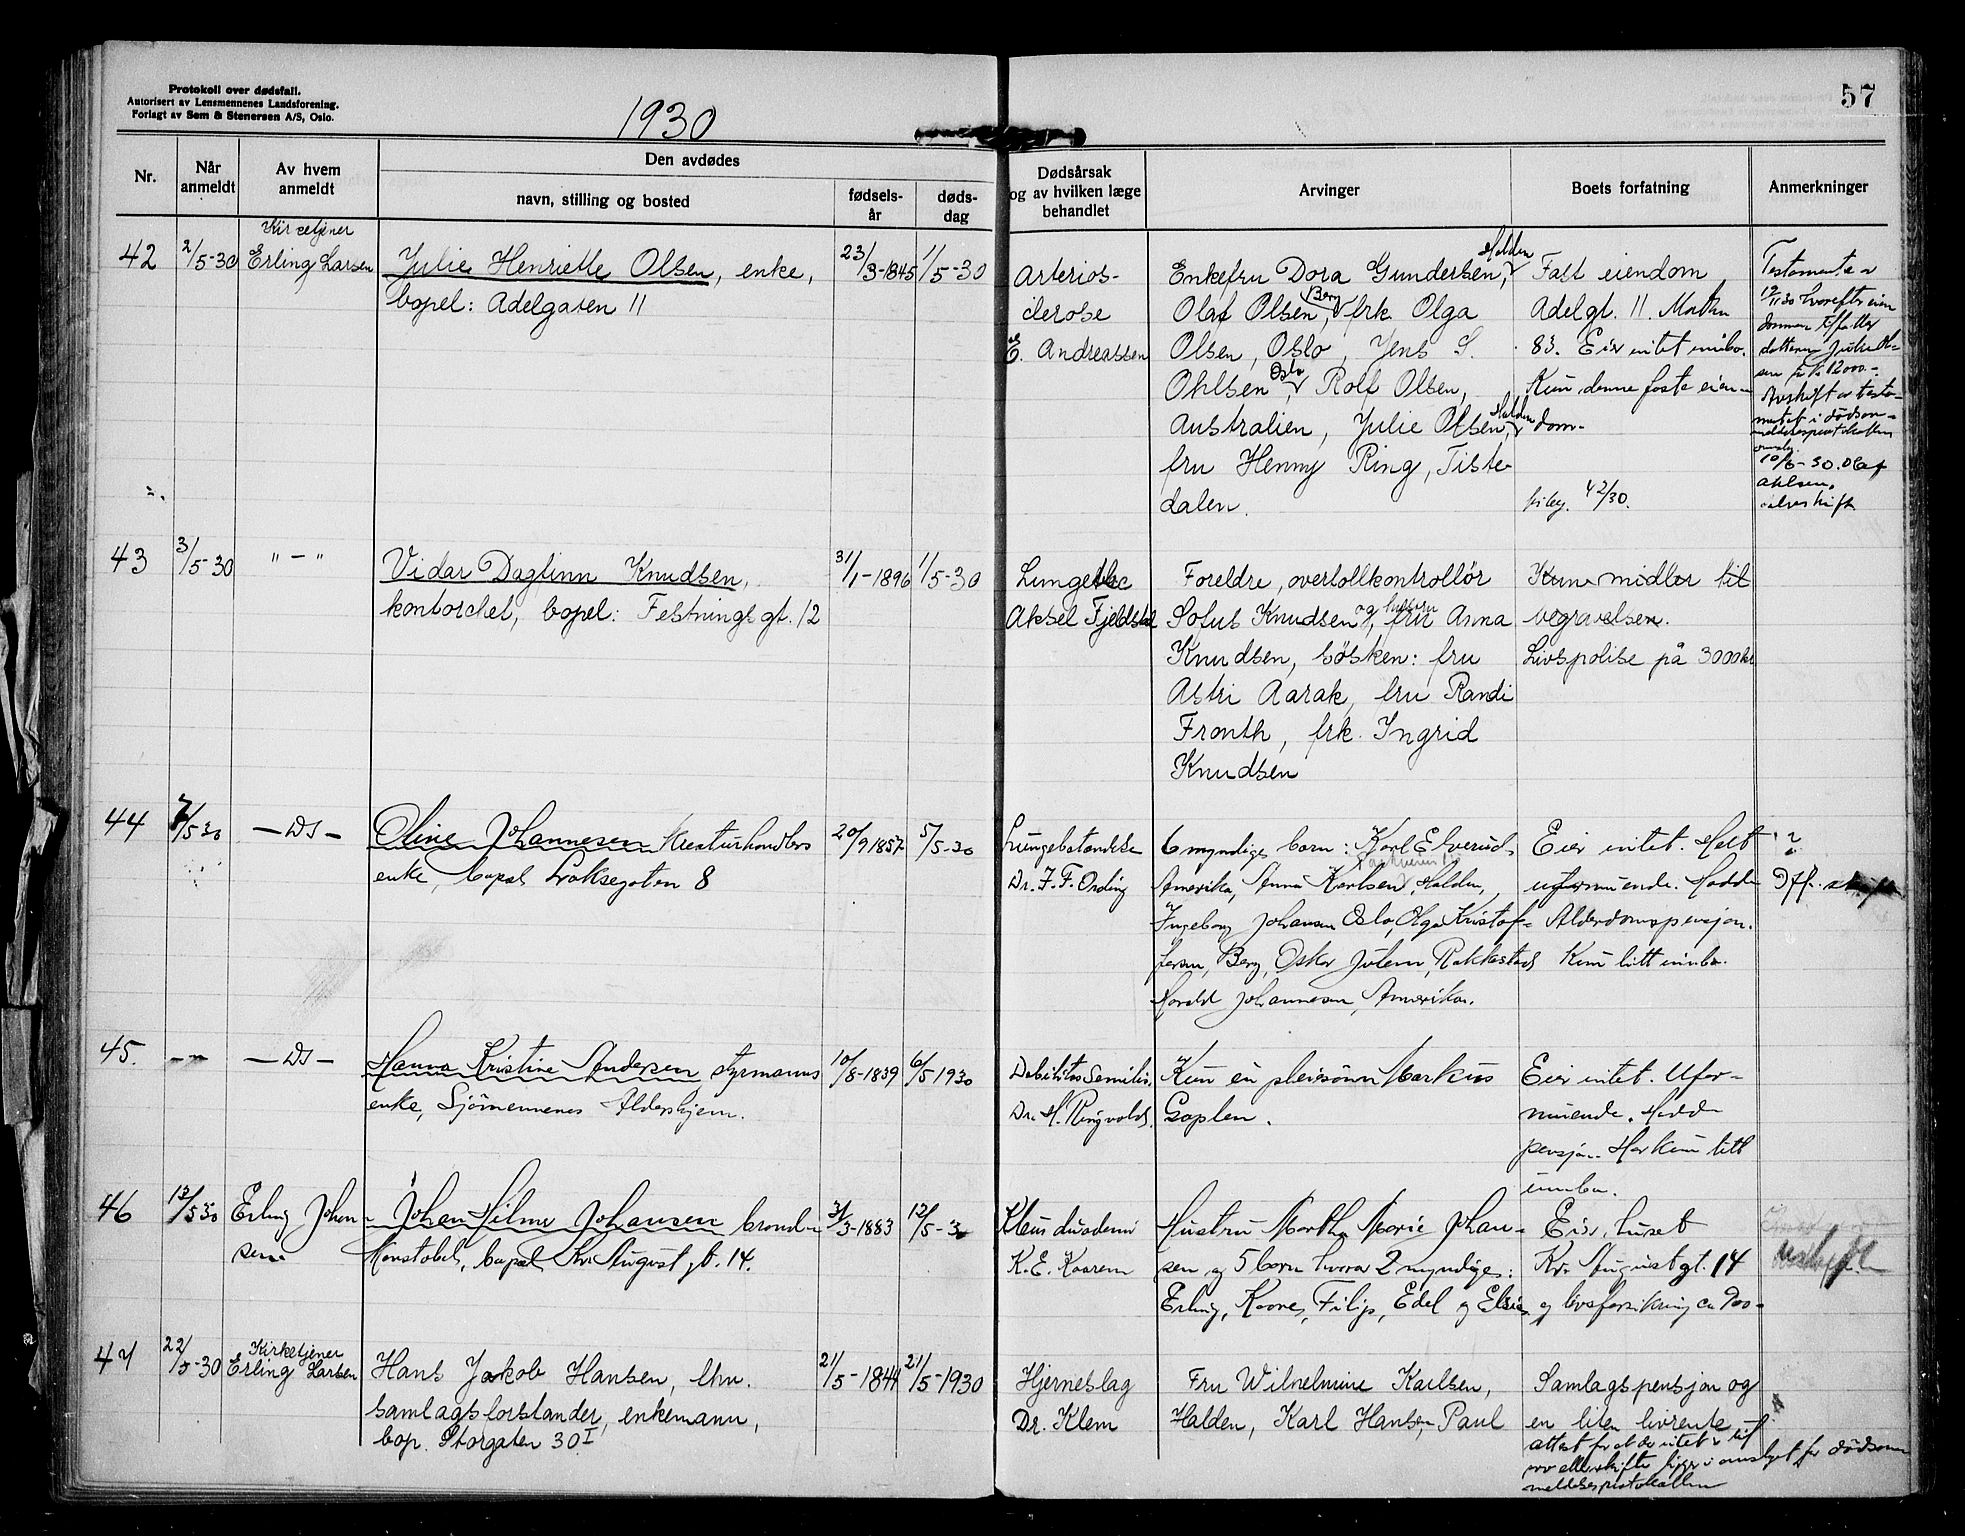 Protokoll over dødsfall.
Autorisert av Lensmennenes Landsforening.
Forlagt av Sem & Stenersen A/S, Oslo.
1930
57
Nr.
Når anmeldt
Av hvem anmeldt
Den avdødes
navn, stilling og bosted
fødselsår
dødsdag
Dødsårsak og av hvilken læge behandlet
Arvinger
Boets forfatning
Anmerkninger
42
2/5-30
Kirketjener
Erling Larsen
Julie Henriette Olsen, enke,
bopel: Adelgaten 11
23/3-1845
1/5-30
Arterios-
clerose
E. Andreassen
Enkefru Dora Gundersen, Halden
Olaf Olsen, Berg, frk. Olga
Olsen, Oslo, Jens S.
Ohlsen, Oslo, Rolf Olsen,
Australien, Julie Olsen, Halden
fru Henny Ring, Tiste-
dalen.
Fast eiendom
Adelgt. 11. Matku
83. Eier intet innbo.
Kun denne faste eien-
dom-
42/30.
Testamente av
12/11 30 hvorefter eien
dommen tilfaller
datteren Julie Ol-
sen for kr. 12000.-
Avskift av testa-
mentet i dødsan-
meldelsesprotokollen
omslag.
10/6-30. Olaf
Ohlsen,
selvskifte
43
3/5-30
" - "
Vidar Dagfinn Knudsen,
kontorchef, bopel: Festningsgt. 12
31/1-1896
1/5-30
Lungetbc
Aksel Fjeldstad
Foreldre, overtollkontrollør
Sofus Knudsen og hustru, fru Anna
Knudsen, søsken: fru
Astri Aarak, fru Randi
Fronth, frk. Ingrid
Knudsen
Kun midler til
begravelsen.
Livspolise på 3000 kr
44
7/5 30
- Ds -
Oline Johannesen kreaturhandlers
enke, bopel Laksegaten 8
20/9 1857
5/5-30
Lungebetendelse
Dr. F. F. Ording
6 myndige barn: Karl Elverud,
Amerika, Anna Karlsen, Halden,
Ingeborg Johansen Oslo, Olga Kristof-
fersen, Berg, Oskar Julsen, Rakkestad
Harald Johannesen, Amerika.
Eier intet. Helt
uformuende. Hadde
Alderdomspensjon.
Kun litt innbo.
?
Off. skifte
45.
- " -
- Ds -
Hanna Kristine Andersen styrmanns
enke, Sjømennenes Aldershjem.
10/8-1839
6/5 1930
Debilitas Senilis,
Dr. H. Ringvold,
Kun en pleiesønn Markus
Goplen.
Eier intet. Ufor-
muende. Hadde
pensjon. Har kun litt
innbo.
46
13/5 30
Erling Johan-
sen
Johan Hilmar Johansen brand-
konstabel, bopel Kr. August gt. 14.
31/3-1883
12/5-30
Ulcus duodeni
K. E. Kaarem
Hustru Martha Marie Johan-
sen og 5 barn hvorav 2 myndige:
Erling, Kaare, Filip, Edel og Elsie
Eier huset
Kr. Augustgt. 14
og livsforsikring ca 900-
Uskifte
47
22/5-30
Kirketjener
Erling Larsen
Hans Jakob Hansen, fhv.
samlagsforstander, enkemann,
bop. Storgaten 30 I
21/5-1844
21/5-1930
Hjerneslag
Dr. Klem
Fru Wilhelmine Karlsen,
Halden, Karl Hansen, Paul
Samlagspensjon og
en liten livrente
attest for at der intet er til
arv eller skifte ligger i omslaget for dødsan
meldelsesprotokollen